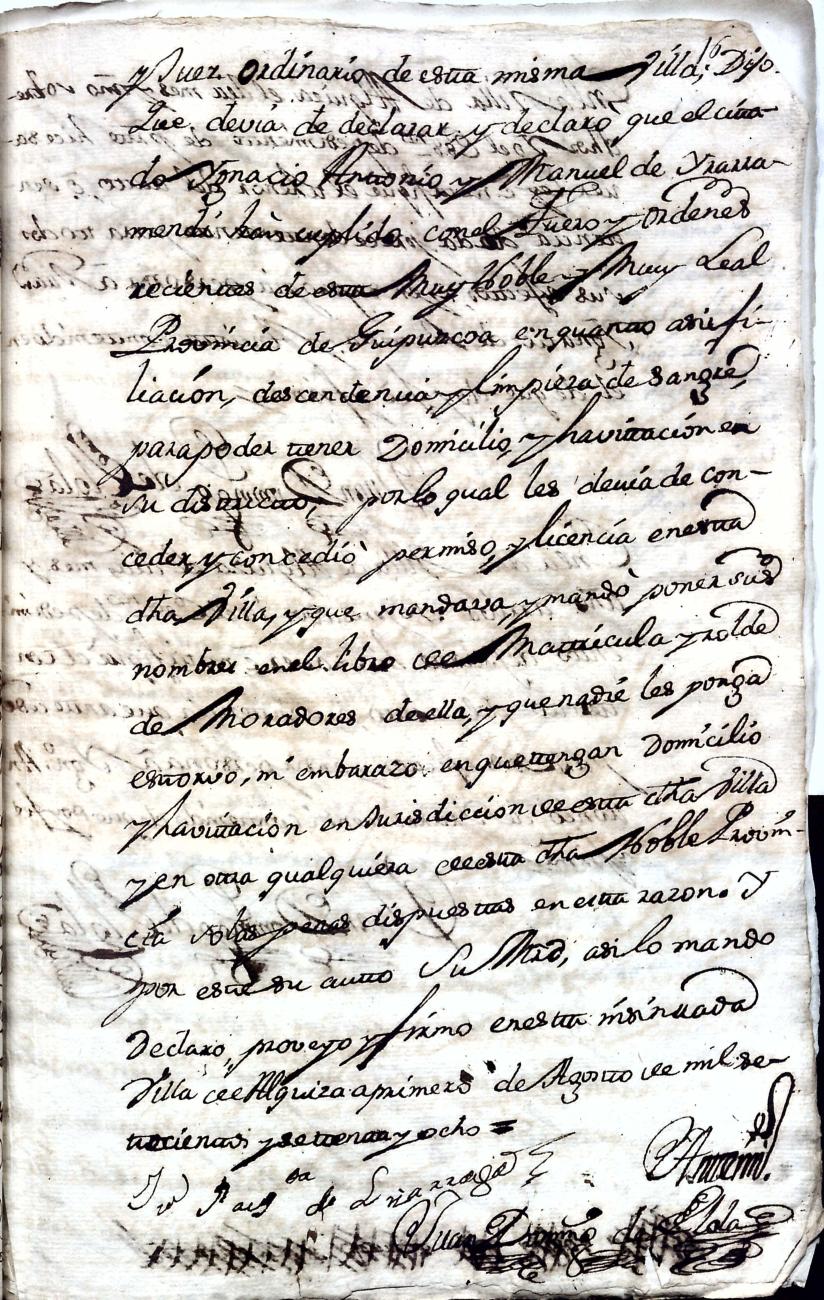 y Juez ordinario de esta misma Villa; Dijo
Que devia de declarar, y declaro que el cita-
do Ygnacio Antonio, y Manuel de Yrarra-
mendi hàn cuplido con el Fuero y ordenes
recientes de esta Muy Noble y Muy Leal
Provincia de Guipuzcoa en quanto a su fi-
liación, descendencia, y limpieza de sangre,
para poder tener Domicilio, y havitación en
su districto, por lo qual les devia de con-
ceder, y concediò permiso, y licencia en esta
dha Villa, y que mandava, y mandò poner sus
nombres en el libro de Matricula y rolde
de Moradores de ella, y que nadie les ponga
estorvo, ni embarazo en que tengan Domicilio
y havitación en Jurisdiccion de esta dha Villa
y en otra qualquiera de esta dha Noble Provin-
cia so las penas dispuestas en esta razon. Y
por este su auto Su Mrd, asi lo mando
Declaro, proveyo y firmo en esta insinuada
Villa de Alquiza a primero de Agosto de mil se-
tecientos y setenta y ocho =
de Lizarraga
Antemi
Juan de Elola